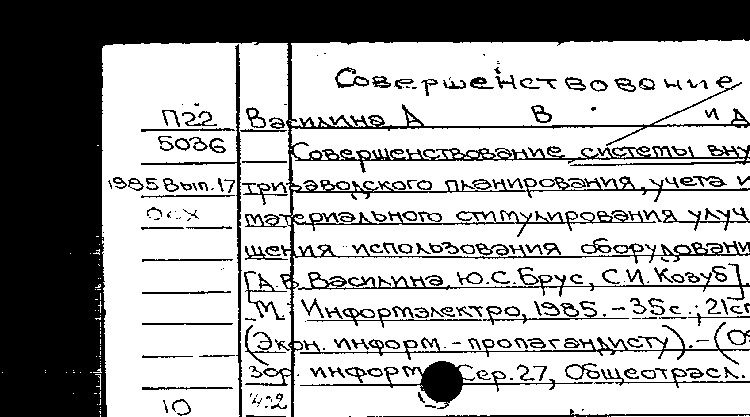 Совершенствование
П22 Василина А В и д
5036 Совершенствование системы вну
1985 Вып.17 тризаводского планирования, учета и
осх материального стимулирования улуч
шения использования оборудовани
[А.В.Василина, Ю.С.Брус, С.И.Козуб].
М.: Информэлектро, 1985. - 35с.; 21с
(Экон. информ. - пропагандисту). - (Об
зор. информ Сер. 27, Общеотрасл.
10 4:2